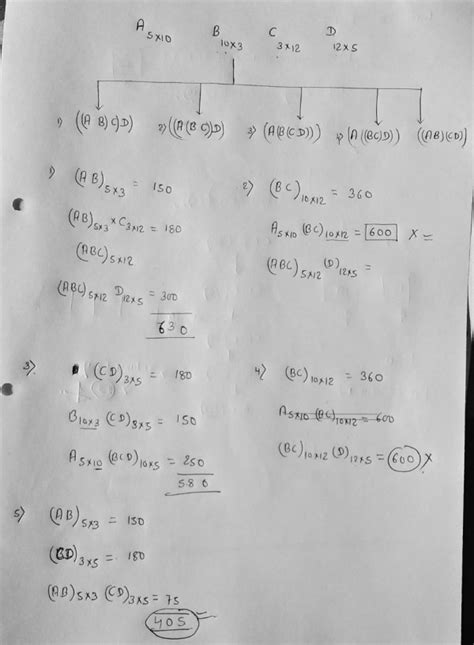 A5x10 B10x3 C3x12 D12x5
1) ((A B) C) D) 2) ((A (B C)) D) 3) (A(B(CD))) 4) (A ((BC) D)) ((AB) (CD))
1) (AB)5x3 = 150
(AB)5x3 x C3x12 = 180
(ABC)5x12
(ABC)5x12 D12x5 = 300
630
2) (BC)10x12 = 360
A5x10 (BC)10x12 = 600 X =
(ABC)5x12 (D)12x5 =
3) (CD)3x5 = 180
B10x3 (CD)3x5 = 150
A5x10 (BCD)10x5 = 250
580
4) (BC)10x12 = 360
A5x10 (BC)10x12 = 600
(BC)10x12 (D)12x5 = 600 X
5) (AB)5x3 = 150
(CD)3x5 = 180
(AB)5x3 (CD)3x5 = 75
405